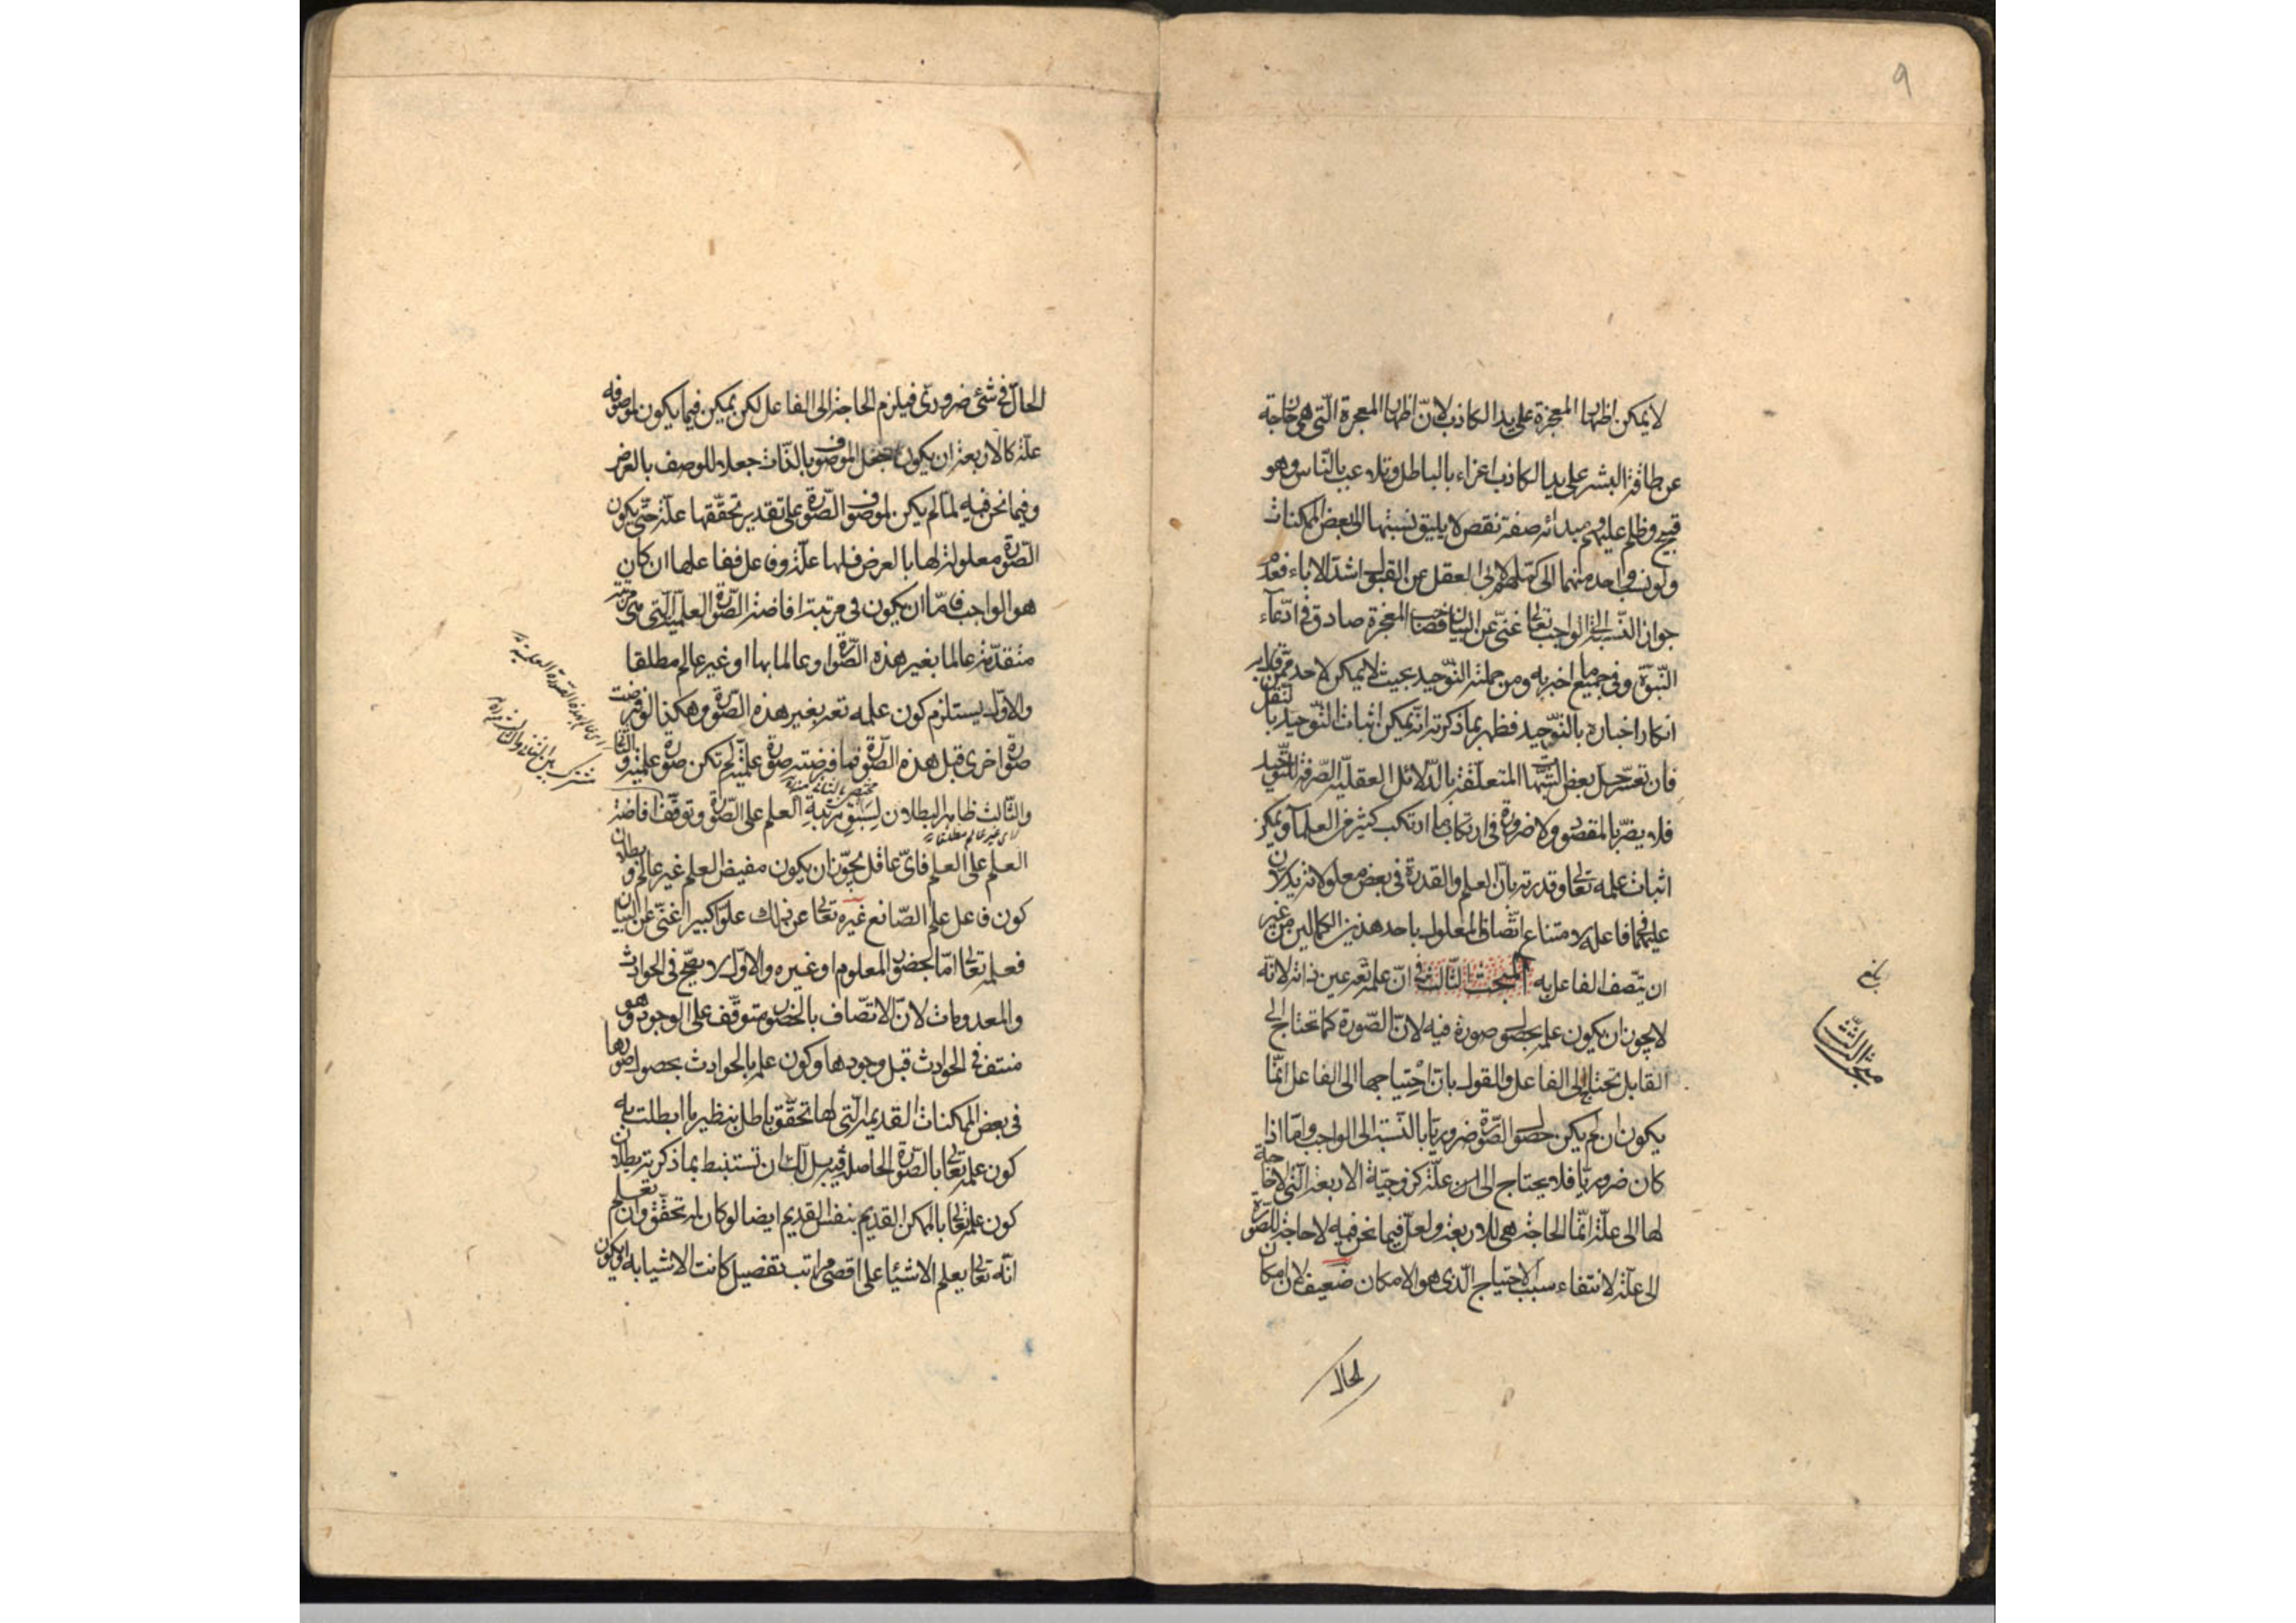 ٩
لا يمكن اظهار المعجزة على يد الكاذب لانّ اظهار المعجزة التى هى خارجة
عن طاقة البشر على يد الكاذب اغراء بالباطل وتلاعب بالنّاس وهو
قبيح وظلم عليهم ومبدائه صفة نقص لا يليق نسبتها الى بعض الممكنات
ولو نسب واحد منهما الى كتلهم لابى العقل عن القبول اشدّ الاباء فعدم
جواز النّسبة الى الواجب تعالى غنىّ عن البيان فصاحب المعجزة صادق فى ادّعاء
النّبوّة وفى جميع ما اخبر به ومن جملته التّوحيد بحيث لا يمكن لاحد ممّن
انكار اخباره بالتّوحيد فظهر بما ذكرته انّه يمكن اثبات التّوحيد بالنقل
فان تعسّر حلّ بعض الشّبهات المتعلّقة بالدّلائل العقليّة الصّرفة للتّوحيد
فلا يضرّ بالمقصود ولا ضرورة فى ارتكاب ما ارتكب كثير من العلماء ويمكن
اثبات علمه تعالى وقدرته بانّ العلم والقدرة فى بعض معلولاته يدلان
عليهما فى فاعله لامتناع اتّصاف المعلول باحد هذين الكمالين من غير
ان يتّصف الفاعل به المبحث الثّالث فى انّ علمه تعه عين ذاته لانّه
لا يجوز ان يكون علمه بحصول صورة فيه لانّ الصّورة كما تحتاج الى
القابل تحتاج الى الفاعل والقول بان احتياجها الى الفاعل انّما
يكون ان لم يكن حصول الصّورة ضروريّا بالنّسبة الى الواجب وامّا اذا
كان ضروريّا فلا يحتاج الى علّة كزوجيّة الاربعة التى لا حاجة
لها الى علّة انّما الحاجة هى للاربعة ولعلّ فيما نحن فيه لا حاجة للصّورة
الى علّة لانتفاء سبب الاحتياج الّذى هو الامكان ضعيف لان امكان
بلغ
مبحث الثّالث
لحال
الحال فى شئ ضرورىّ فيلزم الحاجة الى الفاعل لكن يمكن فيما يكون لموصوفه
علّة كالاربعة ان يكون جعل الموصوف بالذّات جعلا للوصف بالعرض
وفيما نحن فيه لمّا لم يكن لموصوف الصّورة على تقدير تحقّقها علّة حتّى يكون
الصّورة معلولة لها بالعرض فلها علّة وفاعل ففاعلها ان كان
هو الواجب فامّا ان يكون فى مرتبة افاضة الصّورة العلميّة الّتى هى مرتبة
متقدّمة عالما بغير هذه الصّورة او عالما بها او غير عالم مطلقا
والاوّل يستلزم كون علمه تعه بغير هذه الصّورة وهكذا لو فرضت
صورة اخرى قبل هذه الصّورة فما فرضته صورة علميّة لم تكن صورة علميّة والثّانى
والثّالث ظاهر البطلان لِسَبْقِ مرتبةِ العلم على الصّورة وتوقّف افاضة
العلم على العلم فاىّ عاقل يجوّز ان يكون مفيض العلم غير عالم وبطلان
كون فاعل علم الصّانع غيره تعالى عن ذلك علوّا كبيرا غنىّ عن البيان
فعلمه تعالى امّا لحضور المعلوم او غيره والاوّل لا يصحّ فى الحوادث
والمعدومات لانّ الاتصّاف بالحضور متوقّف على الوجود وهو
منتف فى الحوادث قبل وجودها وكون علمه بالحوادث بحصول صورها
فى بعض الممكنات القديمة الّتى لها تحقّق باطل بنظير ما ابطلت به
كون علمه تعالى بالصّورة الحاصلة فيه بل لك ان تستنبط بما ذكرته بطلان
كون علمه تعالى بالممكن القديم بنفس القديم ايضا لو كان له تحقّق وان تعلم
انّه تعالى يعلم الاشياء على اقصى مراتب تفصيل كانت الاشياء به او يكون
مختصّ بالثانى
اى غير عالم مطلقا
اى عالما بهذه الصّورة العلمية
مشترك بين الثانى والثالث